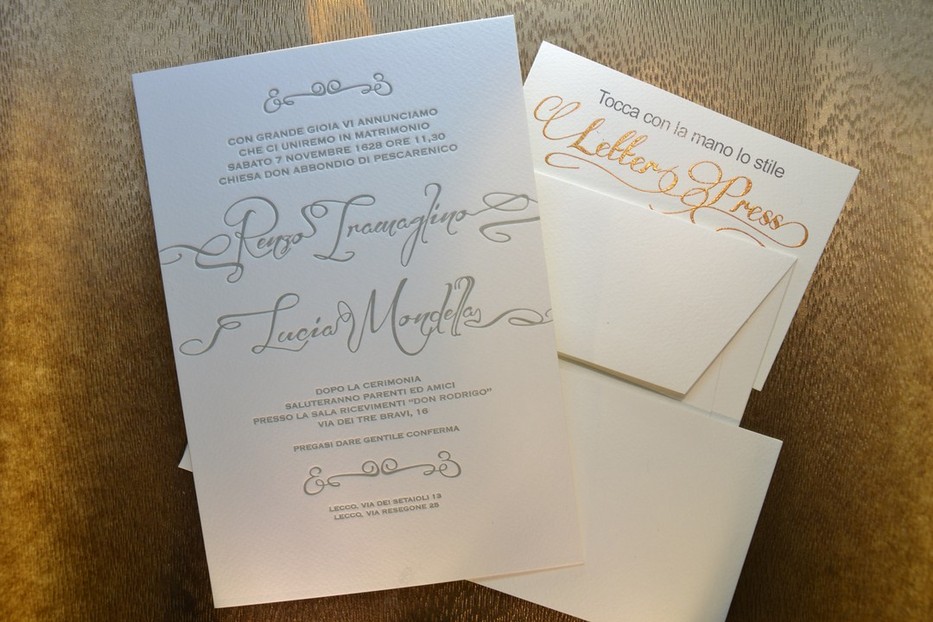 CON GRANDE GIOIA VI ANNUNCIAMO
CHE CI UNIREMO IN MATRIMONIO
SABATO 7 NOVEMBRE 1628 ORE 11,30
CHIESA DON ABBONDIO DI PESCARENICO
Renzo Tramaglino
Lucia Mondella
DOPO LA CERIMONIA
SALUTERANNO PARENTI ED AMICI
PRESSO LA SALA RICEVIMENTI "DON RODRIGO"
VIA DEI TRE BRAVI, 16
PREGASI DARE GENTILE CONFERMA
LECCO, VIA DEI SETAIOLI 13
LECCO, VIA RESEGONE 25
Tocca con la mano lo stile
Letter Press